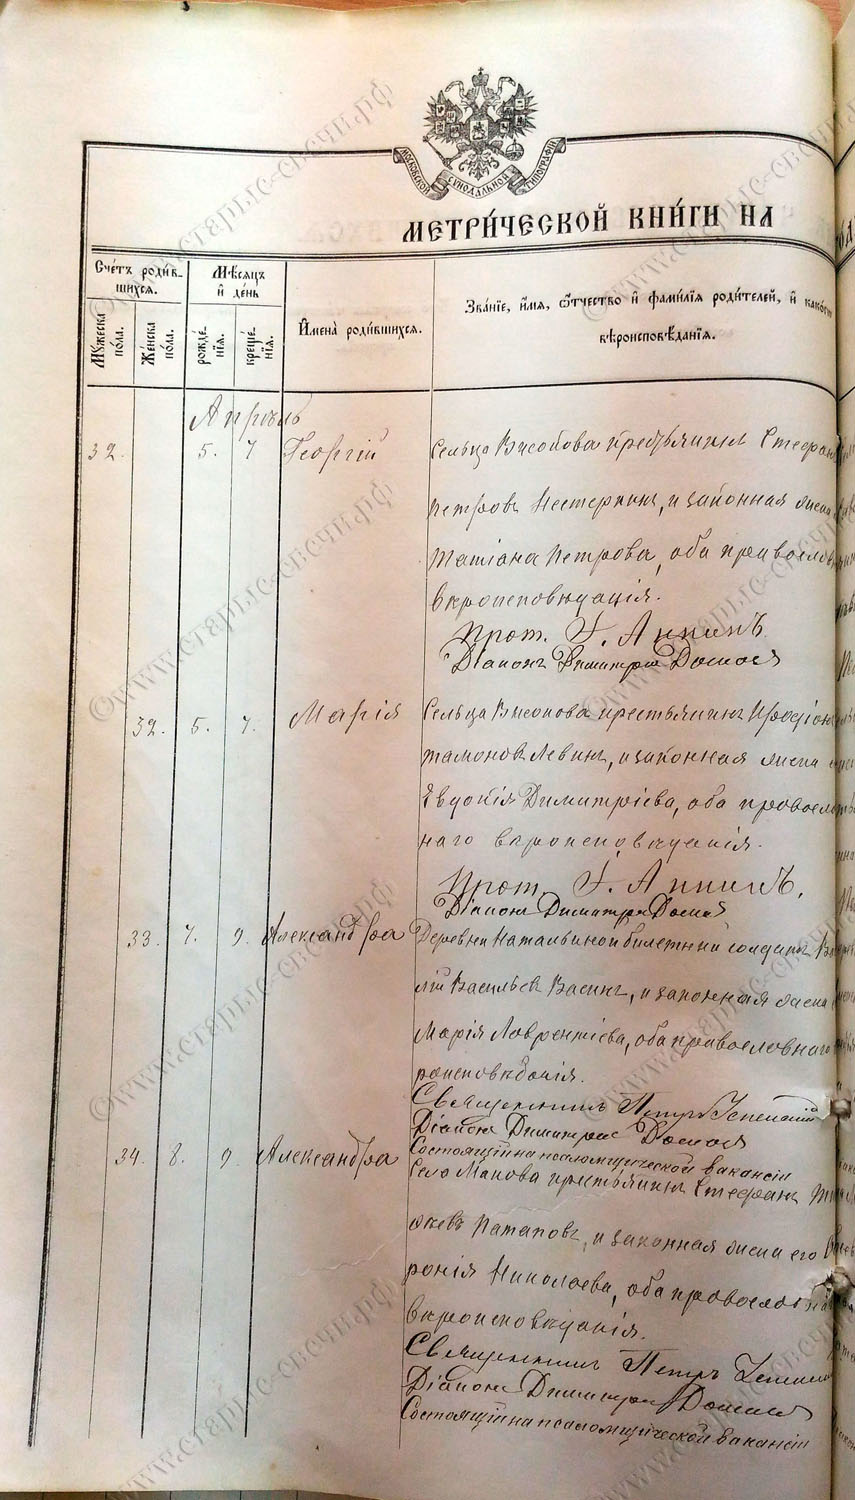 МОСКОВСКОЙ СѴНОДАЛЬНОЙ ТИПОГРАФІИ
МЕТРИ́ЧЕСКОЙ КНИ́ГИ НА
Сче́тъ роди́в-
шихся.
Му́жеска
по́ла.
Же́нска
по́ла.
Мѣ́сяцъ
и҆ де́нь
рожде́-
нїя.
креще́-
нїя.
И҆мена̀ роди́вшихся.
Зва́нїе, и҆́мя, ѻ҆́тчество и҆ фами́лїя роди́телей, и҆ како́гѡ
вѣроисповѣ́данїя.
Апрѣль
32. 5. 7 Георгій
Сельца Высокова крестьянинъ Стефанъ
Петровъ Нестеркинъ, и законная жена
Татіана Петрова, оба православ
вѣроисповѣданія.
Прот. І.
Діаконъ Димитрій
32. 5. 7. Марія
Сельца Высокова крестьянинъ
Левинъ, и законная жена
Евдокія Димитріева, оба православ
наго вѣроисповѣданія.
Прот. І.
Діаконъ Димитрій
33. 7. 9. Александра
Деревни Натальиной билетный солдатъ Ва
лій Васильевъ Васинъ, и законная жена
Марія Лаврентіева, оба православнаго
роисповѣданія.
Священникъ Петръ Успенскій
Діаконъ Димитрій
Состоящій на псаломщической вакансіи
34. 8. 9 Александра
Село Макова крестьянинъ Стефанъ
Патаповъ, и законная жена его
ронія Николаева, оба православна
вѣроисповѣданія.
Священникъ Петръ
Діаконъ Димитрій
Состоящій на псаломщической вакансіи
©www.старые-свечи.рф